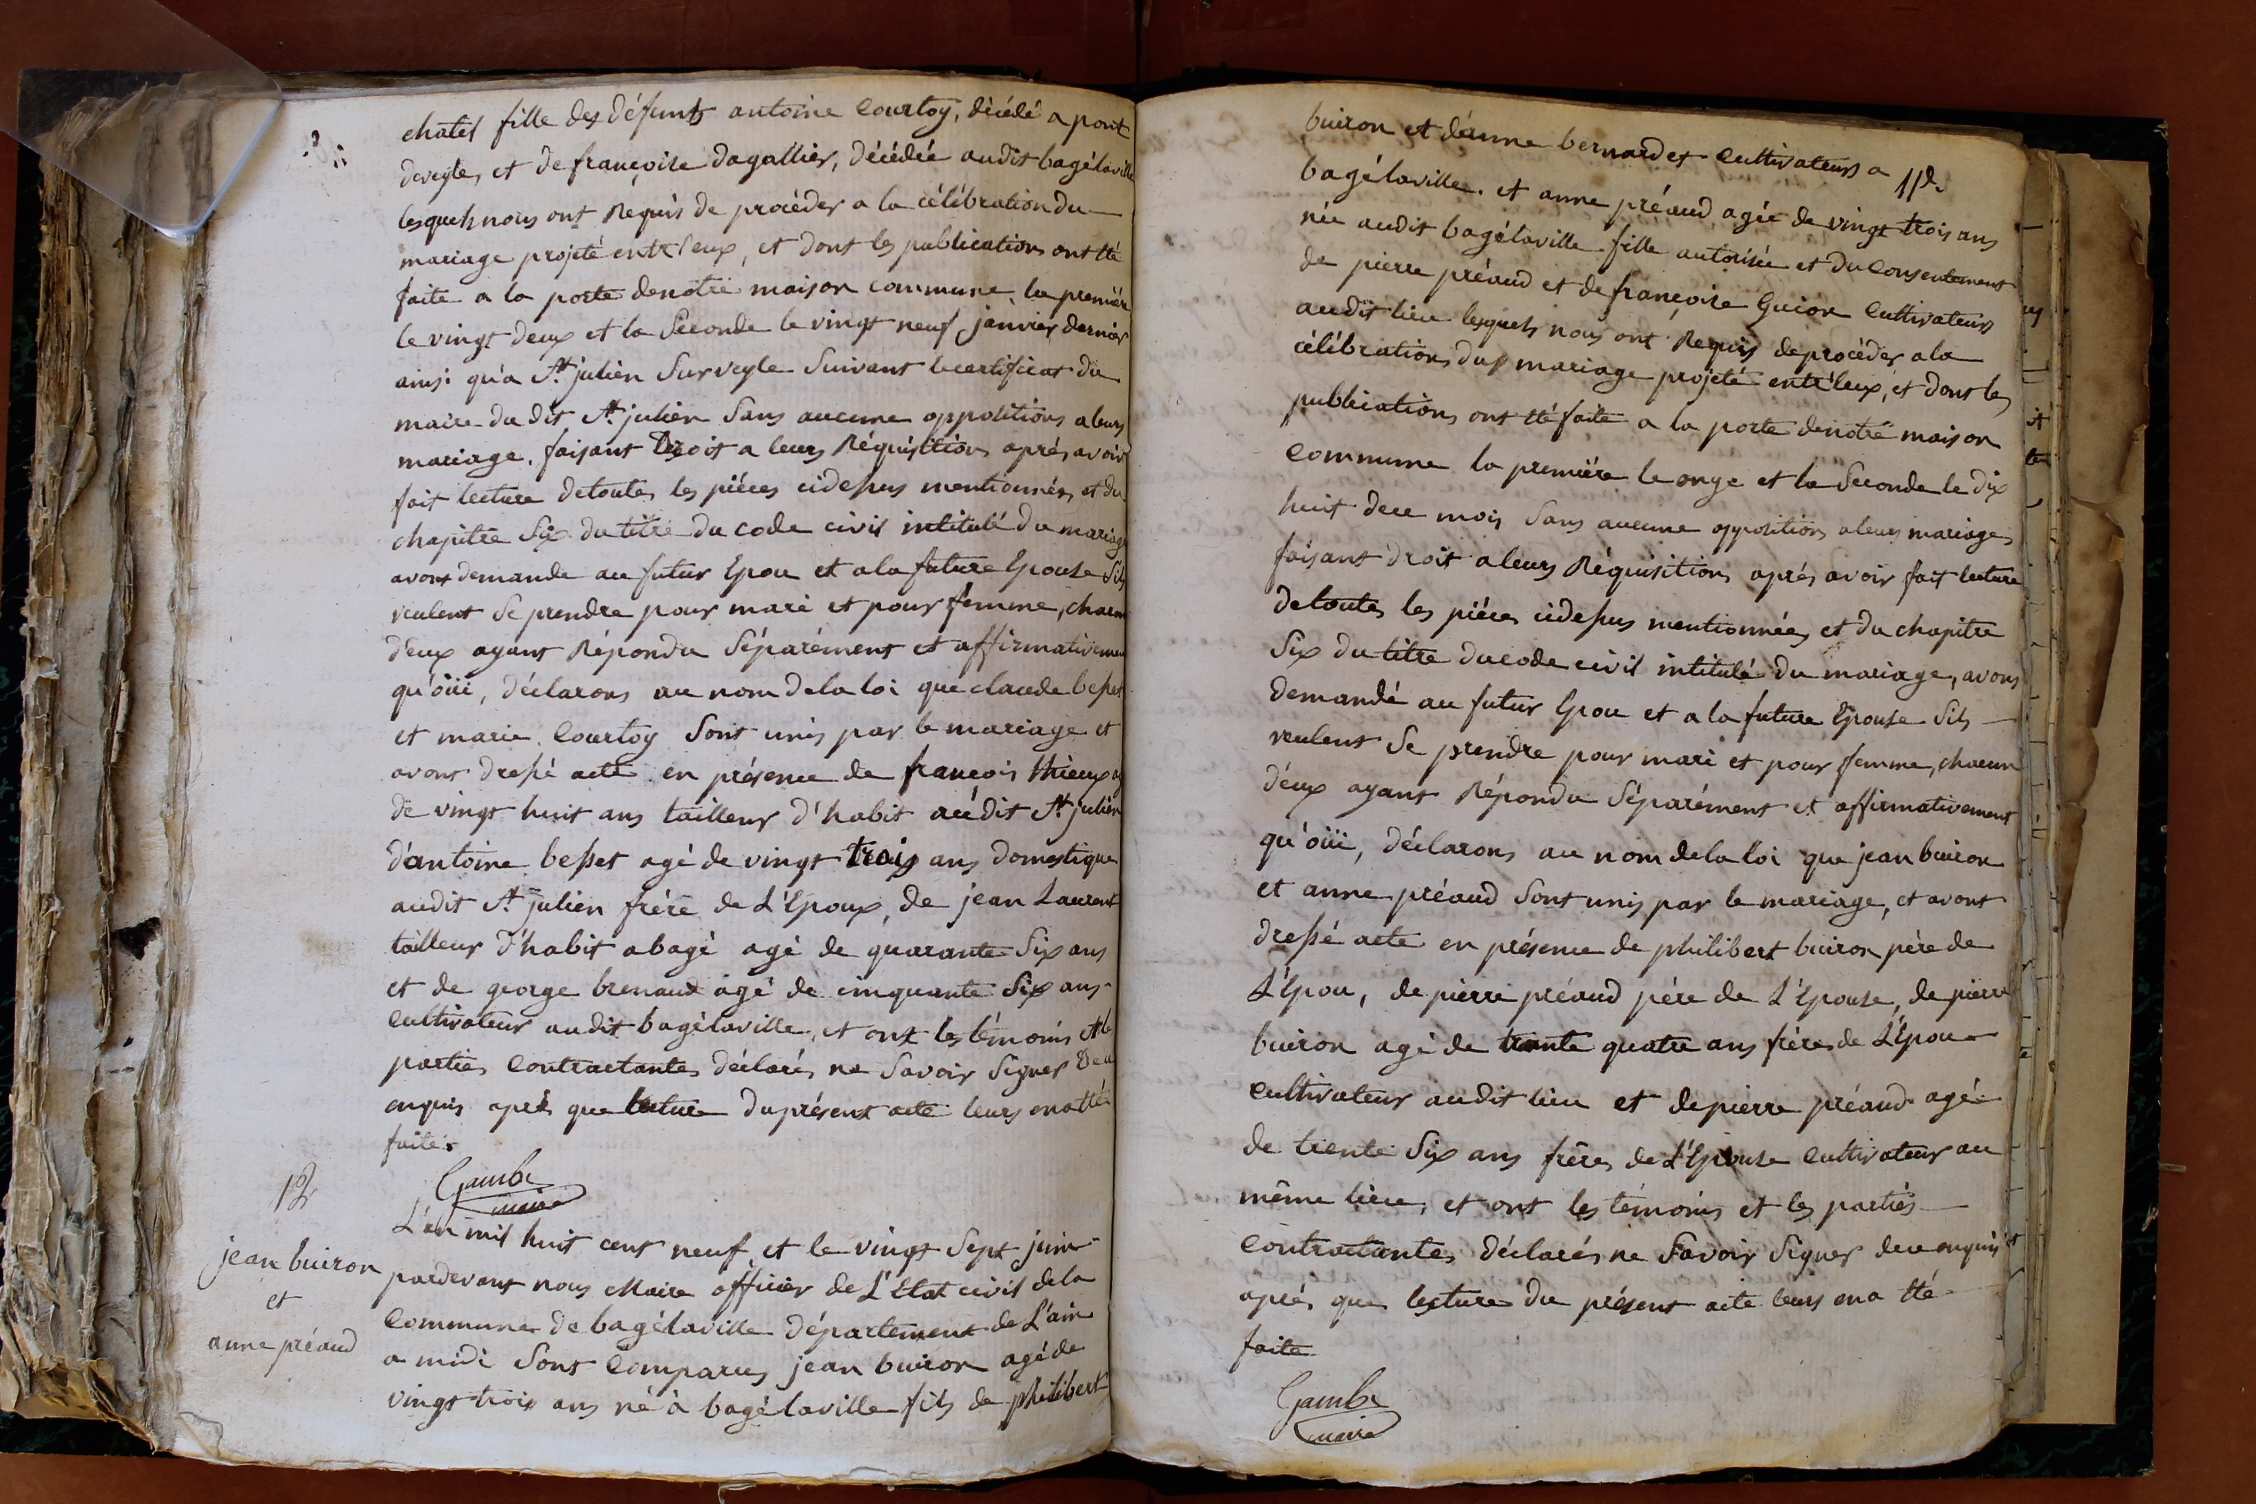 chatel fille des défunts antoine Courtoy, décédé a pont
deveyle, et de françoise dagallier, décédée audit bagélaville
lesquels nous ont Requis de procéder a la célébration du
mariage projeté entr'eux, et dont les publications ont été
faite a la porte denotre maison commune, la première
le vingt deux et la Seconde le vingt neuf janvier dernier
ainsi qu'a St. julien Sur veyle Suivant le certificat du
maire du dit St. julien Sans aucune oppositions a leurs
mariage. faisant Droit a leurs Réquisitions aprés avoir
fait lecture detoutes les piéces cidessus mentionnées et du
chapitre Six du titre du code civil intitulé du mariage
avons demande au futur Epou et a la future Epouse Sils
veulent Se prendre pour mari et pour femme, chacun
d'eux ayant Répondu Séparément et affirmativement
qu'oüi, déclarons au nom dela loi que claude besset
et marie Courtoy Sont unis par le mariage et
avons dressé acte en présence de françois thieux
de vingt huit ans tailleur d'habit audit St. julien
d'antoine besset agé de vingt trois ans domestique
audit St. julien frére de L'Epoux, de jean Laurent
tailleur d'habit a bagé agé de quarante Six ans
et de george brenaux agé de cinquante Six ans
cultivateur audit bagélaville, et ont les témoins et les
parties Contractantes déclarés ne Savoir Signer de ce
enquis aprés que lecture du présent acte leurs ena été
faite.
Gambe
maire
12
jean buiron
et
anne préaud
L'an mil huit cent neuf et le vingt Sept juin
pardevant nous Maire officier de L'Etat civil dela
Commune de bagélaville département de L'ain
a midi Sont Comparus jean buiron agé de
vingt trois ans né à bagélaville fils de philibert
buiron et d'anne bernardet Cultivateurs a
bagélaville. et anne préaud agée de vingt trois ans
née audit bagélaville fille autorisée et du Consentement
de pierre préaud et de françoise Guion Cultivateurs
audit lieu lesquels nous ont Requis deprocéder a la
célébrations du mariage projeté entr'eux, et dont les
publications ont été faite a la porte denotre maison
Commune la première le onze et la Seconde le dix
huit dece mois Sans aucune opposition a leurs mariages
faisant droit a leurs Réquisitions aprés avoir fait lecture
detoutes les piéces cidessus mentionnées et du chapitre
Six du titre ducode civil intitulé du mariage, avons
demandé au futur Epou et a la future Epouse Sils
veulent Se prendre pour mari et pour femme, chacun
d'eux ayant Répondu Séparément et affirmativement
qu'oüi, déclarons au nom dela loi que jean buiron
et anne préaud Sont unis par le mariage, et avons
dressé acte en présence de philibert buiron pére de
L'Epou, de pierre préaud pére de L'Epouse, de pierre
buiron agé de trente quatre ans frére de L'Epou
cultivateur audit lieu et depierre préaud agé
de trente Six ans frére de L'Epouse Cultivateur au
même lieu, et ont les témoins et les parties
Contractantes déclarés ne Savoir Signer dece enquis
aprés que lecture du présent acte leurs ena été
faite
Gambe
maire